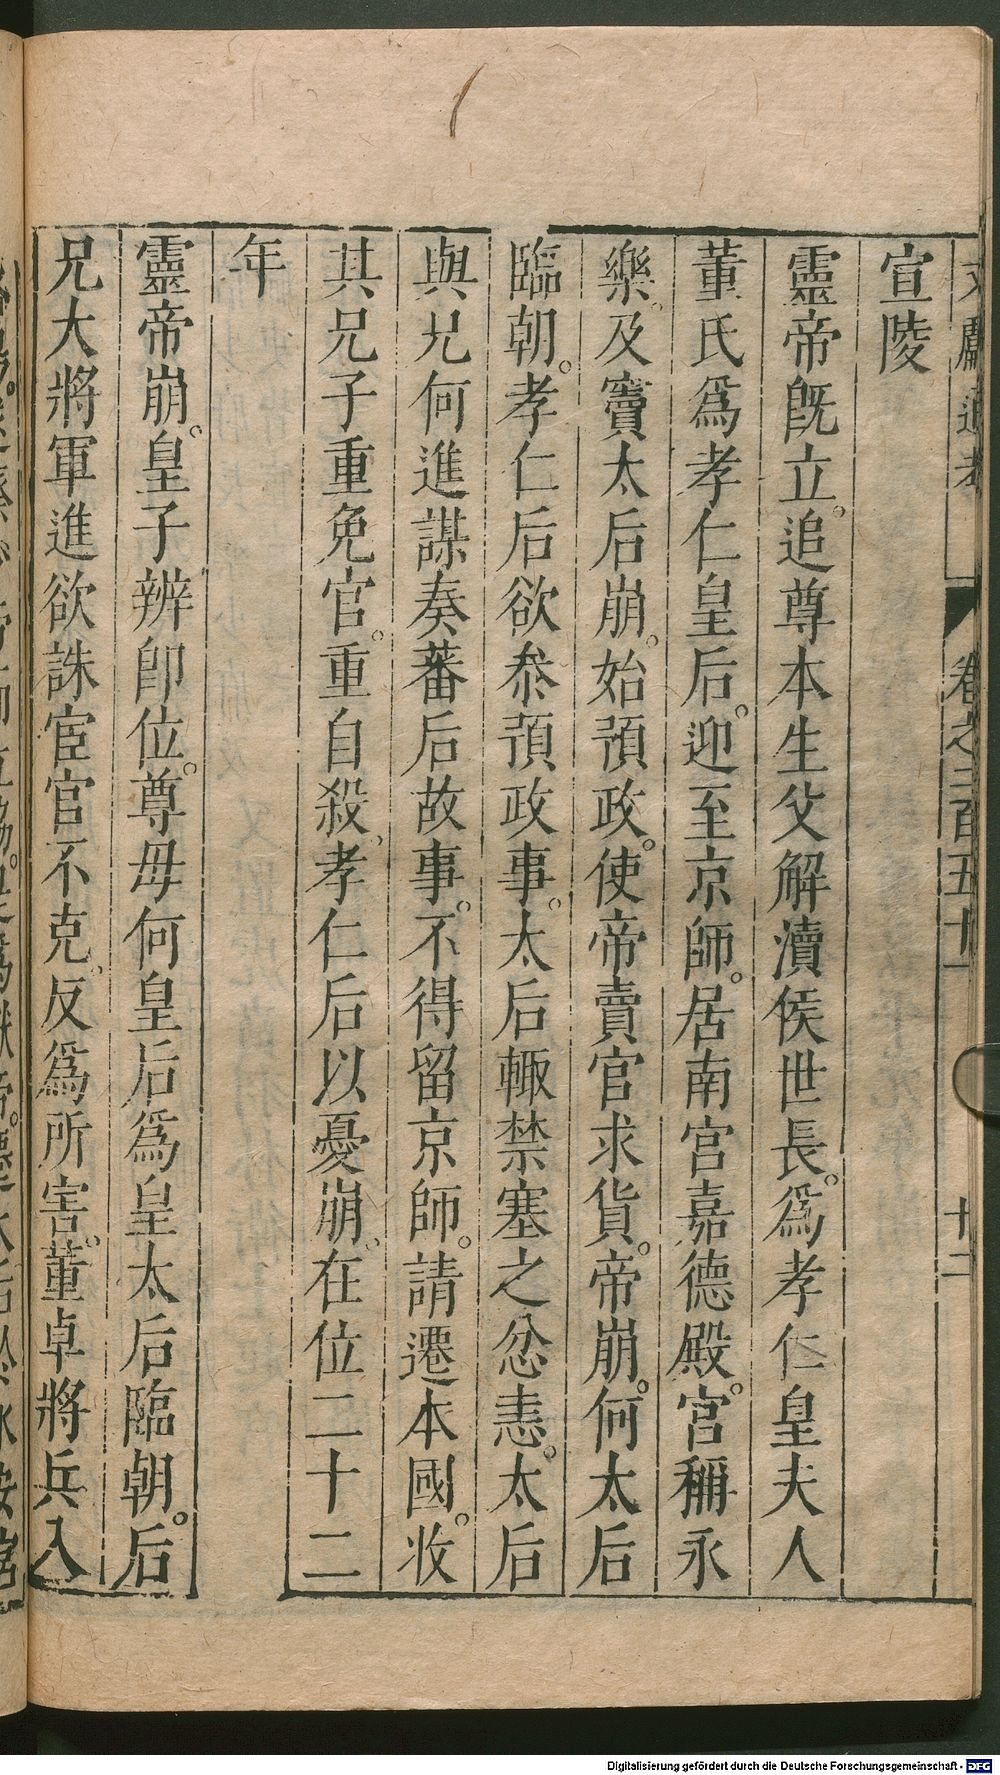 文獻通考 卷之二百五十一 十二
宣陵
靈帝旣立。追尊本生父解瀆侯世長。爲孝仁皇夫人
董氏爲孝仁皇后。迎至京師。居南宮嘉德殿。宮稱永
樂。及竇太后崩。始預政。使帝賣官求貨。帝崩。何太后
臨朝。孝仁后欲叅預政事。太后輙禁塞之忿恚。太后
與兄何進謀奏蕃后故事。不得留京師。請遷本國。收
其兄子重免官。重自殺、孝仁后以憂崩。在位二十二
年
靈帝崩。皇子辨卽位。尊母何皇后爲皇太后臨朝。后
兄大將軍進欲誅宦官不克。反爲所害。董卓將兵入
Digitalisierung gefördert durch die Deutsche Forschungsgemeinschaft - DFG